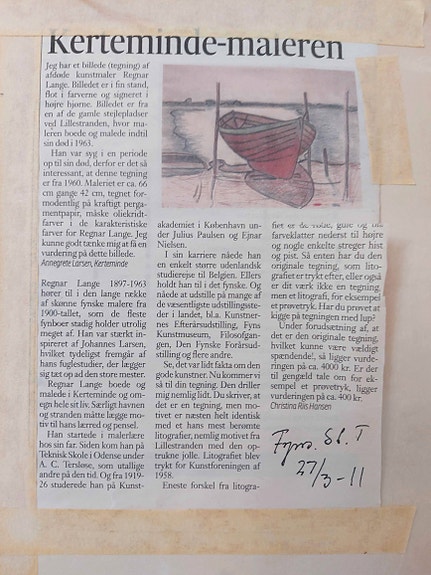 Kerteminde-maleren
Jeg har et billede (tegning) af
afdøde kunstmaler Regnar
Lange. Billedet er i fin stand,
flot i farverne og signeret i
højre hjørne. Billedet er fra
en af de gamle stejlepladser
ved Lillestranden, hvor ma-
leren boede og malede indtil
sin død i 1963.
Han var syg i en periode
op til sin død, derfor er det så
interessant, at denne tegning
er fra 1960. Maleriet er ca. 66
cm gange 42 cm, tegnet for-
modentlig på kraftigt perga-
mentpapir, måske oliekridt-
farver i de karakteristiske
farver for Regnar Lange. Jeg
kunne godt tænke mig at få en
vurdering på dette billede.
Annegrete Larsen, Kerteminde
Regnar Lange 1897-1963
hører til i den lange række
af skønne fynske malere fra
1900-tallet, som de fleste
fynboer stadig holder utrolig
meget af. Han var stærkt in-
spireret af Johannes Larsen,
hvilket tydeligst fremgår af
hans fuglestudier, der lægger
sig tæt op ad den store mester.
Regnar Lange boede og
malede i Kerteminde og om-
egn hele sit liv. Særligt havnen
og stranden måtte lægge mo-
tiv til hans lærred og pensel.
Han startede i malerlære
hos sin far. Siden kom han på
Teknisk Skole i Odense under
A. C. Tersløse, som utallige
andre på den tid. Og fra 1919-
26 studerede han på Kunst-
akademiet i København un-
der Julius Paulsen og Ejnar
Nielsen.
I sin karriere nåede han
en enkelt større udenlandsk
studierejse til Belgien. Ellers
holdt han til i det fynske. Og
nåede at udstille på mange af
de væsentligste udstillingsste-
der i landet, bl.a. Kunstner-
nes Efterårsudstilling, Fyns
Kunstmuseum, Filosofgan-
gen, Den Fynske Forårsud-
stilling og flere andre.
Se, det var lidt fakta om den
gode kunstner. Nu kommer vi
så til din tegning. Den driller
mig nemlig lidt. Du skriver, at
det er en tegning, men mo-
tivet er næsten helt identisk
med et hans mest berømte
litografier, nemlig motivet fra
Lillestranden med den op-
trukne jolle. Litografiet blev
trykt for Kunstforeningen af
1958.
Eneste forskel fra litogra-
fiet er de røde, gule og
farveklatter nederst til højre
og nogle enkelte streger hist
og pist. Så enten har du den
originale tegning, som lito-
grafiet er trykt efter, eller også
er dit værk ikke en tegning,
men et litografi, for eksempel
et prøvetryk. Har du prøvet at
kigge på tegningen med lup?
Under forudsætning af, at
det er den originale tegning,
hvilket kunne være vældigt
spændende', så ligger vurde-
ringen på ca. 4000 kr. Er der
til gengæld tale om for ek-
sempel et prøvetryk, ligger
vurderingen på ca. 400 kr.
Christina Riis Hansen
Fyns. St. T
27/3-11